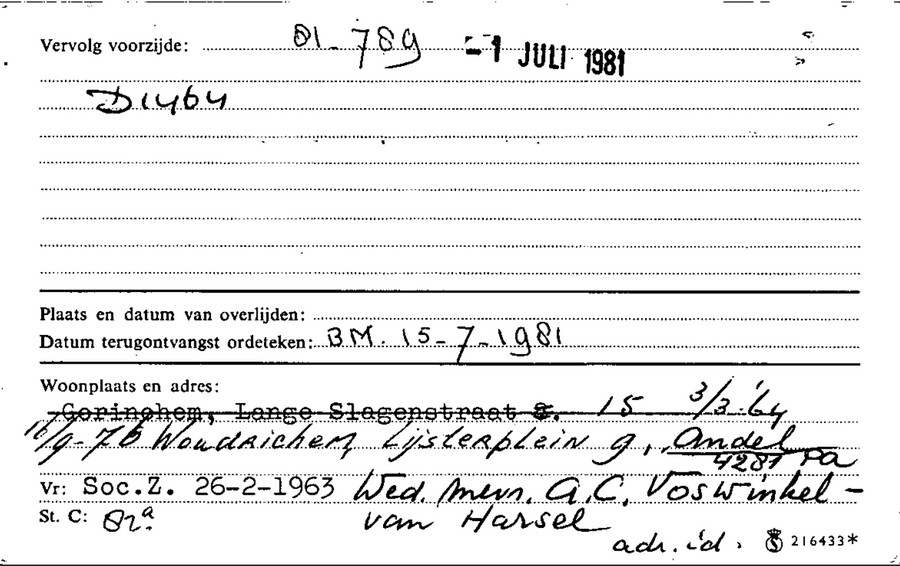 Vervolg voorzijde: 81-789 -1 JULI 1981
D1464
Plaats en datum van overlijden:
Datum terugontvangst ordeteken: BM. 15-7-1981
Woonplaats en adres:
Gorinchem, Lange Slagenstraat 15 3/3-'64
10/9-76 Woudrichem, Lijsterplein 9, Andel
4281 PA
Vr: Soc.Z. 26-2-1963 Wed. Mevr. A.C. Voswinkel-
St. C: 82a. van Harsel
adr. id. 216433*